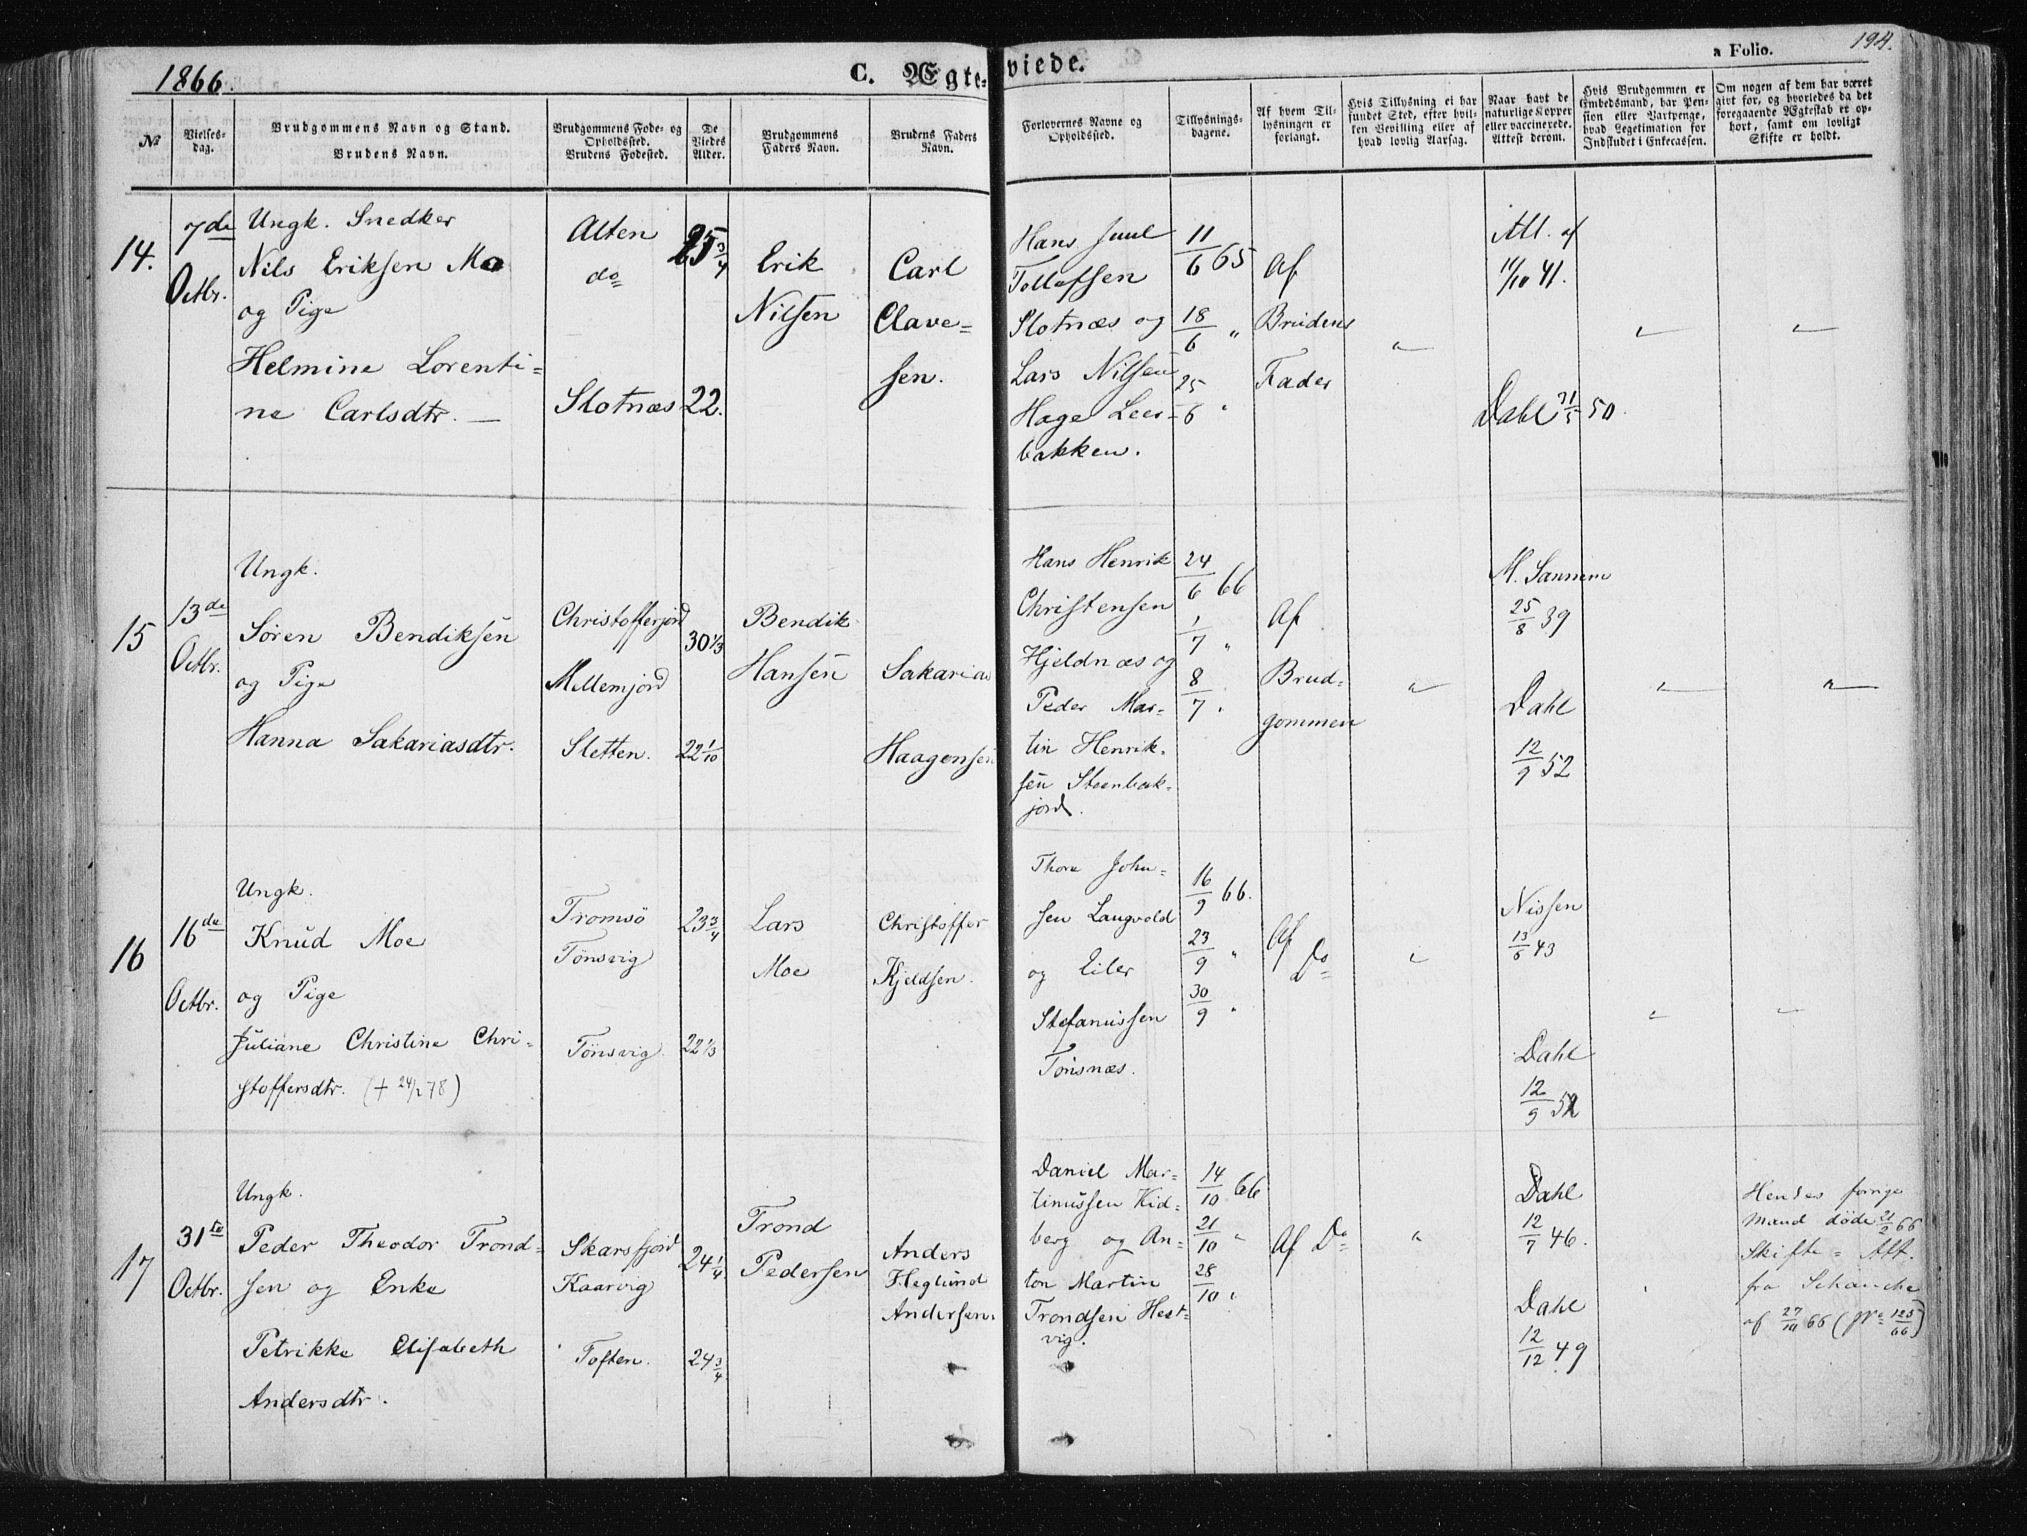 1866.
C. Ægte-
viede.
a Folio.
194.
No
Vielses-
dag.
Brudgommens Navn og Stand.
Brudens Navn.
Brudgommens Føde- og
Opholdssted.
Brudens Fødested.
De
Viedes
Alder.
Brudgommens
Faders Navn.
Brudens Faders
Navn.
Forlovernes Navne og
Opholdssted.
Tillysnings-
dagene.
Af hvem Til-
lysningen er
forlangt.
Hvis Tillysning ei har
fundet Sted, efter hvil-
ken Bevilling eller af
hvad lovlig Aarsag.
Naar havt de
naturlige Kopper
eller vaccinerede.
Attest derom.
Hvis Brudgommen er
Embedsmand, har Pen-
sion eller Vartpenge,
hvad Legitimation for
Indskudet i Enkecassen.
Om nogen af dem har været
gift før, og hvorledes da det
foregaaende Ægteskab er op-
hørt, samt om lovligt
Skifte er holdt.
14.
7de
Octbr.
Ungk. Snedker
Nils Eriksen Mo
og Pige
Helmine Lorenti-
ne Carlsdtr. —
Alten
do
Slotnæs
25 3/4
22.
Erik
Nilsen
Carl
Clave-
sen.
Hans Juul
Tollefsen
Slotnæs og
Lars Nilsen
Hage Leer-
bakken.
11/6 65
18/6 "
25/6 "
Af
Brudens
Fader
"
Att. af
11/10 41.
Dahl 31/5 50.
"
"
15
13de
Octbr.
Ungk.
Søren Bendiksen
og Pige
Hanna Sakariasdtr.
Christofferjord
Mellemjord
Sletten.
30 1/3
22 1/10
Bendik
Hansen
Sakarias
Haagensen
Hans Henrik
Christensen
Hjeldnæs og
Peder Mar-
tin Henrik-
sen Steenbæk-
jord.
24/6 66
1/7 "
8/7 "
Af
Brud-
gommen
"
M. Sannem
25/8 39
Dahl
12/9 52
"
"
16
16de
Octbr.
Ungk.
Knud Moe
og Pige
Juliane Christine Chri-
stoffersdtr. (+ 24/2 78)
Tromsö
Tønsvig
Tønsvig.
23 3/4
22 1/3
Lars
Moe
Christoffer
Kjeldsen.
Thore John-
sen Langvold
og Eiler
Stefanussen
Tønsnæs.
16/9 66.
23/9 "
30/9 "
Af Do
"
Nissen
13/6 43
Dahl
12/9 52
"
"
17
31te
Octbr.
Ungk.
Peder Theodor Trond-
sen og Enke
Petrikke Elisabeth
Andersdtr.
Skarsfjord
Kaarvig
Toften.
24 1/4
24 3/4
Trond
Pedersen
Anders
Heglund
Andersen.
Daniel Mar-
tinussen Kid-
berg og An-
ton Martin
Trondsen Hest-
vig.
14/10 66
21/10 "
28/10 "
Af Do
"
Dahl
12/7 46.
Dahl
12/12 49
"
Hendes forrige
Mand døde 21/2 66
Skifte-Att.
fra Schanche
af 27/10 66 (No 125/66)